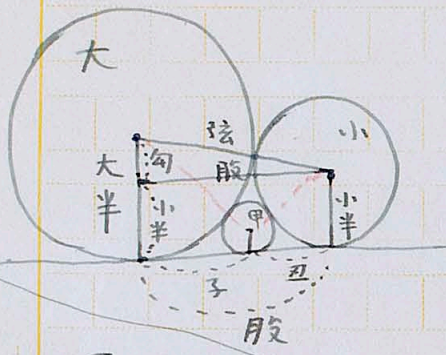 大
小
弦
大半
勾
股
小半
甲
小半
子
丑
股